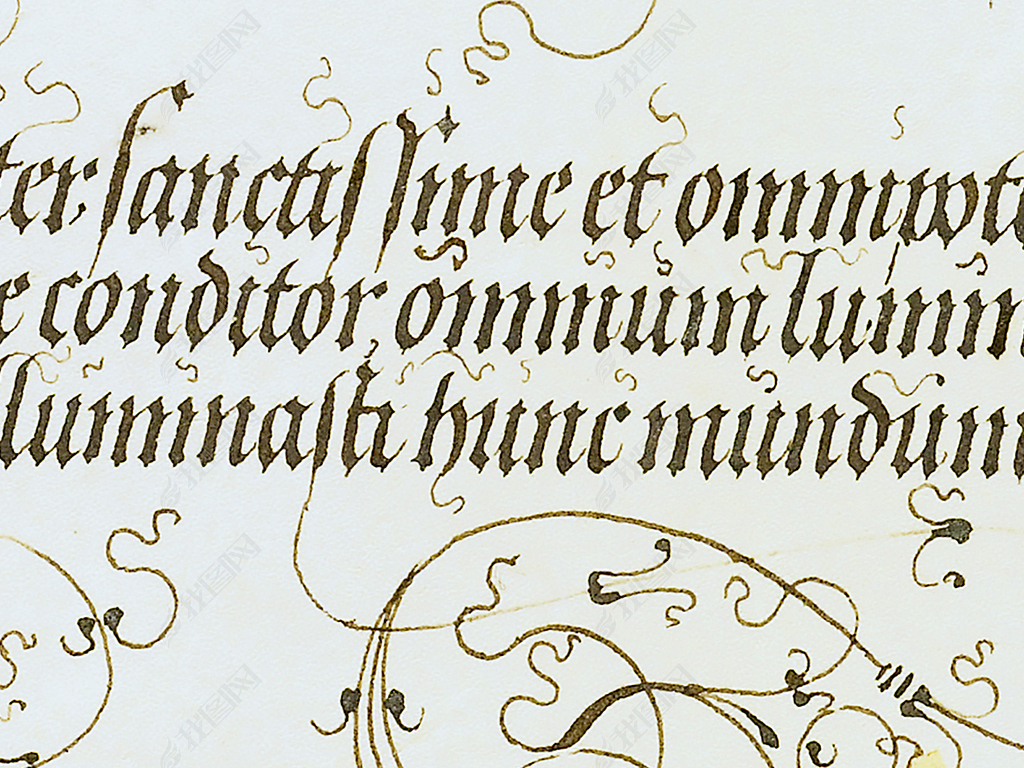 ter. sanctissime et omnipote
e conditor omnium lumin
lluminasti hunc mundum